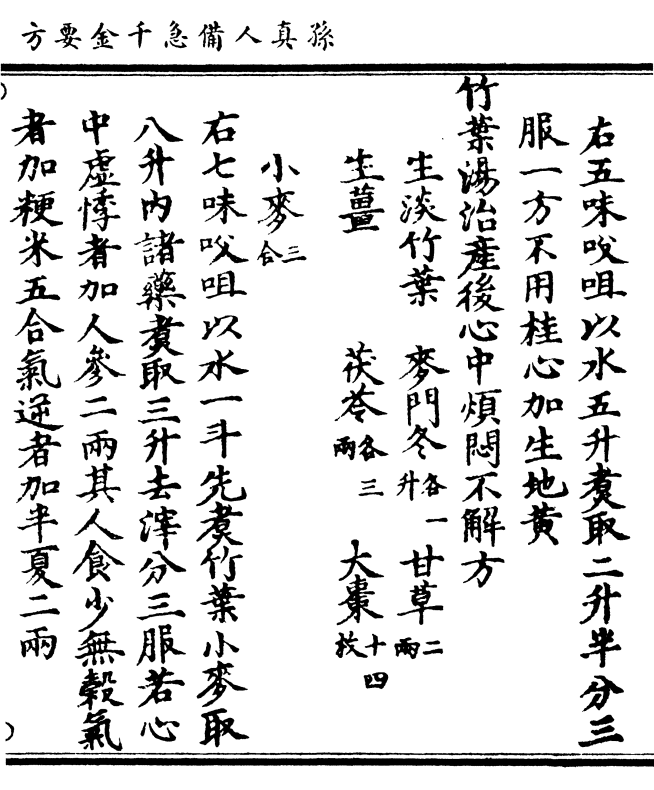 孫真人備急千金要方
右五味㕮咀以水五升煑取二升半分三
服一方不用桂心加生地黄
竹葉湯治產後心中煩悶不解方
生淡竹葉 麥門冬各一升 甘草二兩
生薑 茯苓各三兩 大棗十四枚
小麥三合
右七味㕮咀以水一斗先煑竹葉小麥取
八升內諸藥煑取三升去滓分三服若心
中虛悸者加人參二兩其人食少無穀氣
者加粳米五合氣逆者加半夏二兩